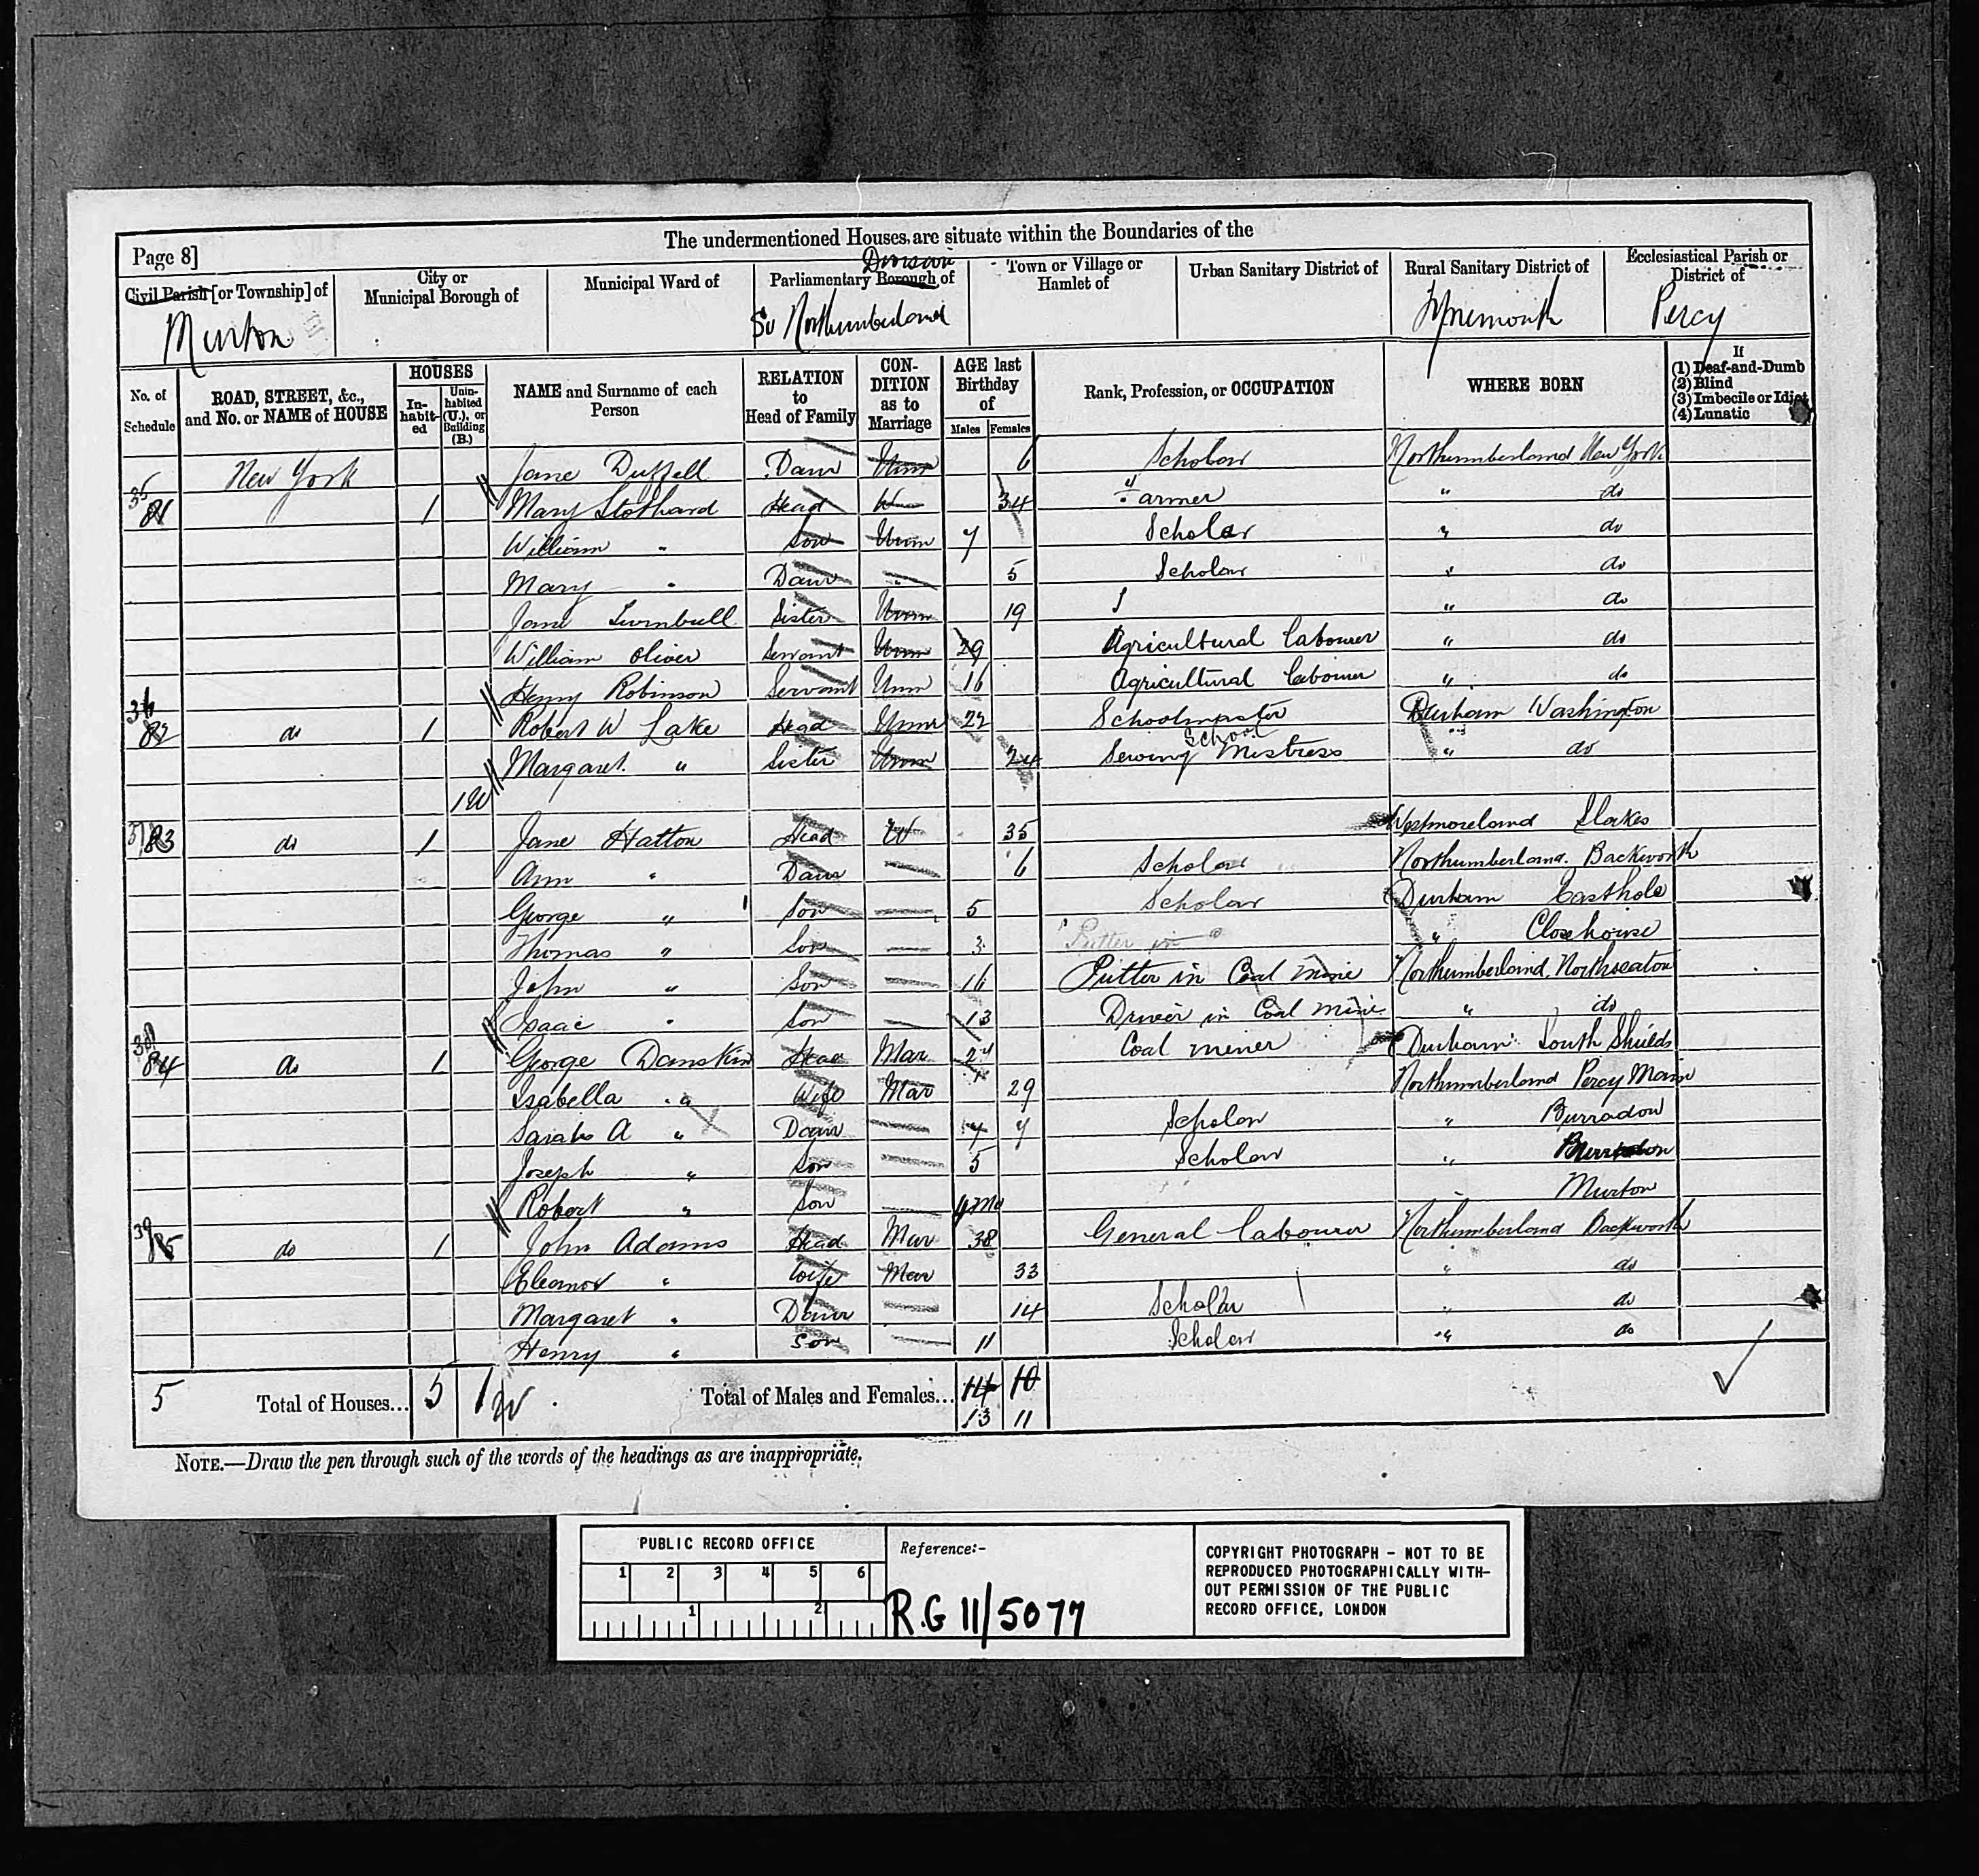 Page 8]
The undermentioned Houses are situate within the Boundaries of the
Civil Parish [or Township] of
City or Municipal Borough of
Municipal Ward of
Parliamentary Borough of Division
Town or Village or Hamlet of
Urban Sanitary District of
Rural Sanitary District of
Ecclesiastical Parish or District of
Murton So Northumberland Tynemouth Percy
No. of Schedule
ROAD, STREET, &c., and No. or NAME of HOUSE
HOUSES
In-habit-ed
Unin-habited (U.), or Building (B.)
NAME and Surname of each Person
RELATION to Head of Family
CON-DITION as to Marriage
AGE last Birthday of
Males Females
Rank, Profession, or OCCUPATION
WHERE BORN
If
(1) Deaf-and-Dumb
(2) Blind
(3) Imbecile or Idiot
(4) Lunatic
New York Jane Duffell Daur Unm 6 Scholar Northumberland New York
35 81 1 Mary Stothard Head W 34 Farmer " do
William " Son Unm 7 Scholar " do
Mary " Daur " 5 Scholar " do
Jane Turnbull Sister Unm 19 " do
William Oliver Servant Unm 29 Agricultural Labourer " do
Henry Robinson Servant Unm 16 Agricultural Labourer " do
36 82 do 1 Robert W Lake Head Unm 22 Schoolmaster Durham Washington
Margaret " Sister Unm 24 Sewing School Mistress " do
1 U
37 83 do 1 Jane Hatton Head W 35 Westmoreland
Ann " Daur 6 Scholar Northumberland Backworth
George " Son 5 Scholar Durham
Thomas " Son 3 Putter in " Closehouse
John " Son 16 Putter in Coal Mine Northumberland Northseaton
Isaac " Son 13 Driver in Coal Mine " do
38 84 do 1 George Danskin Head Mar Coal miner Durham South Shields
Isabella " Wife Mar 29 Northumberland Percy Main
Sarah A " Daur 7 7 Scholar " Burradon
Joseph " Son 5 Scholar "
Robert " Son 4 Mo Murton
39 85 do 1 John Adams Head Mar 38 General Labourer Northumberland Backworth
Eleanor " Wife Mar 33 " do
Margaret " Daur 14 Scholar " do
Henry " Son 11 Scholar " do
5 Total of Houses... 5 1 Total of Males and Females... 14 10
13 11
NOTE.—Draw the pen through such of the words of the headings as are inappropriate.
PUBLIC RECORD OFFICE
1 2 3 4 5 6
1 2
Reference:-
R.G 11/5077
COPYRIGHT PHOTOGRAPH - NOT TO BE
REPRODUCED PHOTOGRAPHICALLY WITH-
OUT PERMISSION OF THE PUBLIC
RECORD OFFICE, LONDON